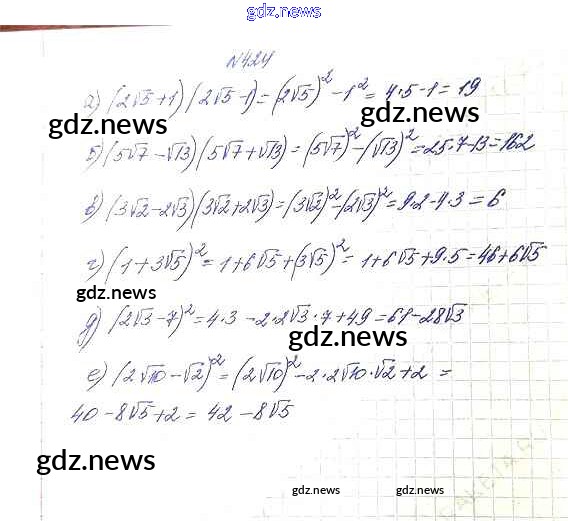 gdz.news
№424
а) (2√5+1)(2√5-1) = (2√5)² - 1² = 4·5-1 = 19
gdz.news
б) (5√7-√13)(5√7+√13) = (5√7)² - (√13)² = 25·7-13 = 162
gdz.news
в) (3√2-2√3)(3√2+2√3) = (3√2)² - (2√3)² = 9·2-4·3 = 6
г) (1+3√5)² = 1+6√5+(3√5)² = 1+6√5+9·5 = 46+6√5
gdz.news
д) (2√3-7)² = 4·3 - 2·2√3·7+49 = 61-28√3
gdz.news
е) (2√10-√2)² = (2√10)² - 2·2√10·√2+2 =
40-8√5+2 = 42-8√5
gdz.news
gdz.news gdz.news